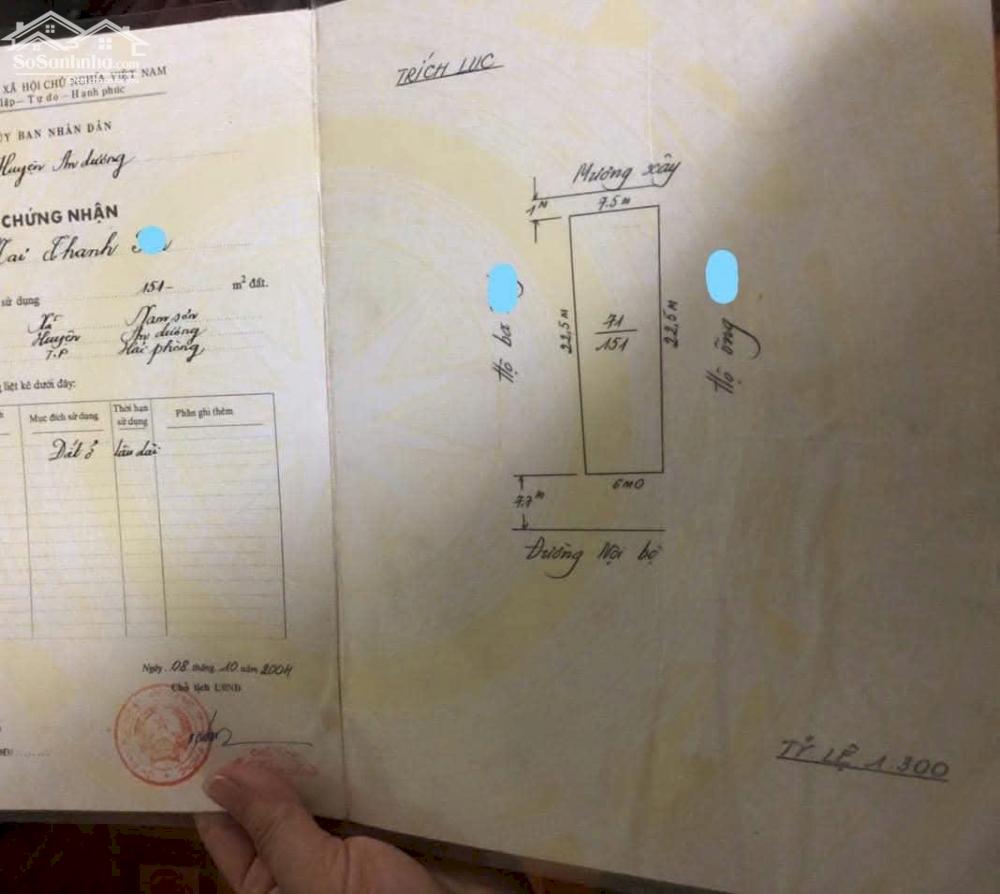 SoSanhnha.com
XÃ HỘI CHỦ NGHĨA VIỆT NAM
lập - Tự do - Hạnh phúc
ỦY BAN NHÂN DÂN
Huyện An dương
CHỨNG NHẬN
Mai Thanh
sử dụng 151- m² đất.
Xã Nam sơn
Huyện An dương
T.P Hải phòng
liệt kê dưới đây:
Mục đích sử dụng
Thời hạn sử dụng
Phần ghi thêm
Đất ở
lâu dài
Ngày 08 tháng 10 năm 2004
Chủ tịch UBND
TRÍCH LỤC
Mương xây
1M
7.5 M
Hộ bà
22,5 M
71
151
22,5 M
Hộ ông
6M0
7.7M
Đường Nội bộ
TỶ LỆ 1.300